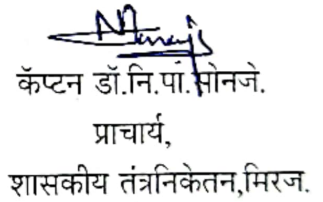 कॅप्टन डॉ.नि.पां.सोनजे.
प्राचार्य,
शासकीय तंत्रनिकेतन,मिरज.